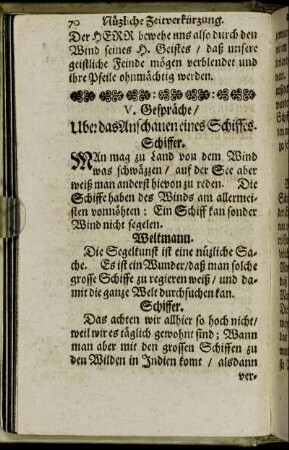 70 Nüzliche Zeitverkürzung.
Der HERR bewehe uns also durch den
Wind seines H. Geistes / daß unsere
geistliche Feinde mögen verblendet und
ihre Pfeile ohnmächtig werden.
V. Gespräche /
Uber das Anschauen eines Schiffes.
Schiffer.
MAn mag zu Land von dem Wind
was schwäzzen / auf der See aber
weiß man anderst hievon zu reden. Die
Schiffe haben des Winds am allermei-
sten vonnöhten: Ein Schiff kan sonder
Wind nicht segelen.
Weltmann.
Die Segelkunst ist eine nüzliche Sa-
che. Es ist ein Wunder / daß man solche
grosse Schiffe zu regieren weiß / und da-
mit die ganze Welt durchsuchen kan.
Schiffer.
Das achten wir allhier so hoch nicht /
weil wir es täglich gewohnt sind; Wann
man aber mit den grossen Schiffen zu
den Wilden in Indien komt / alsdann
ver-